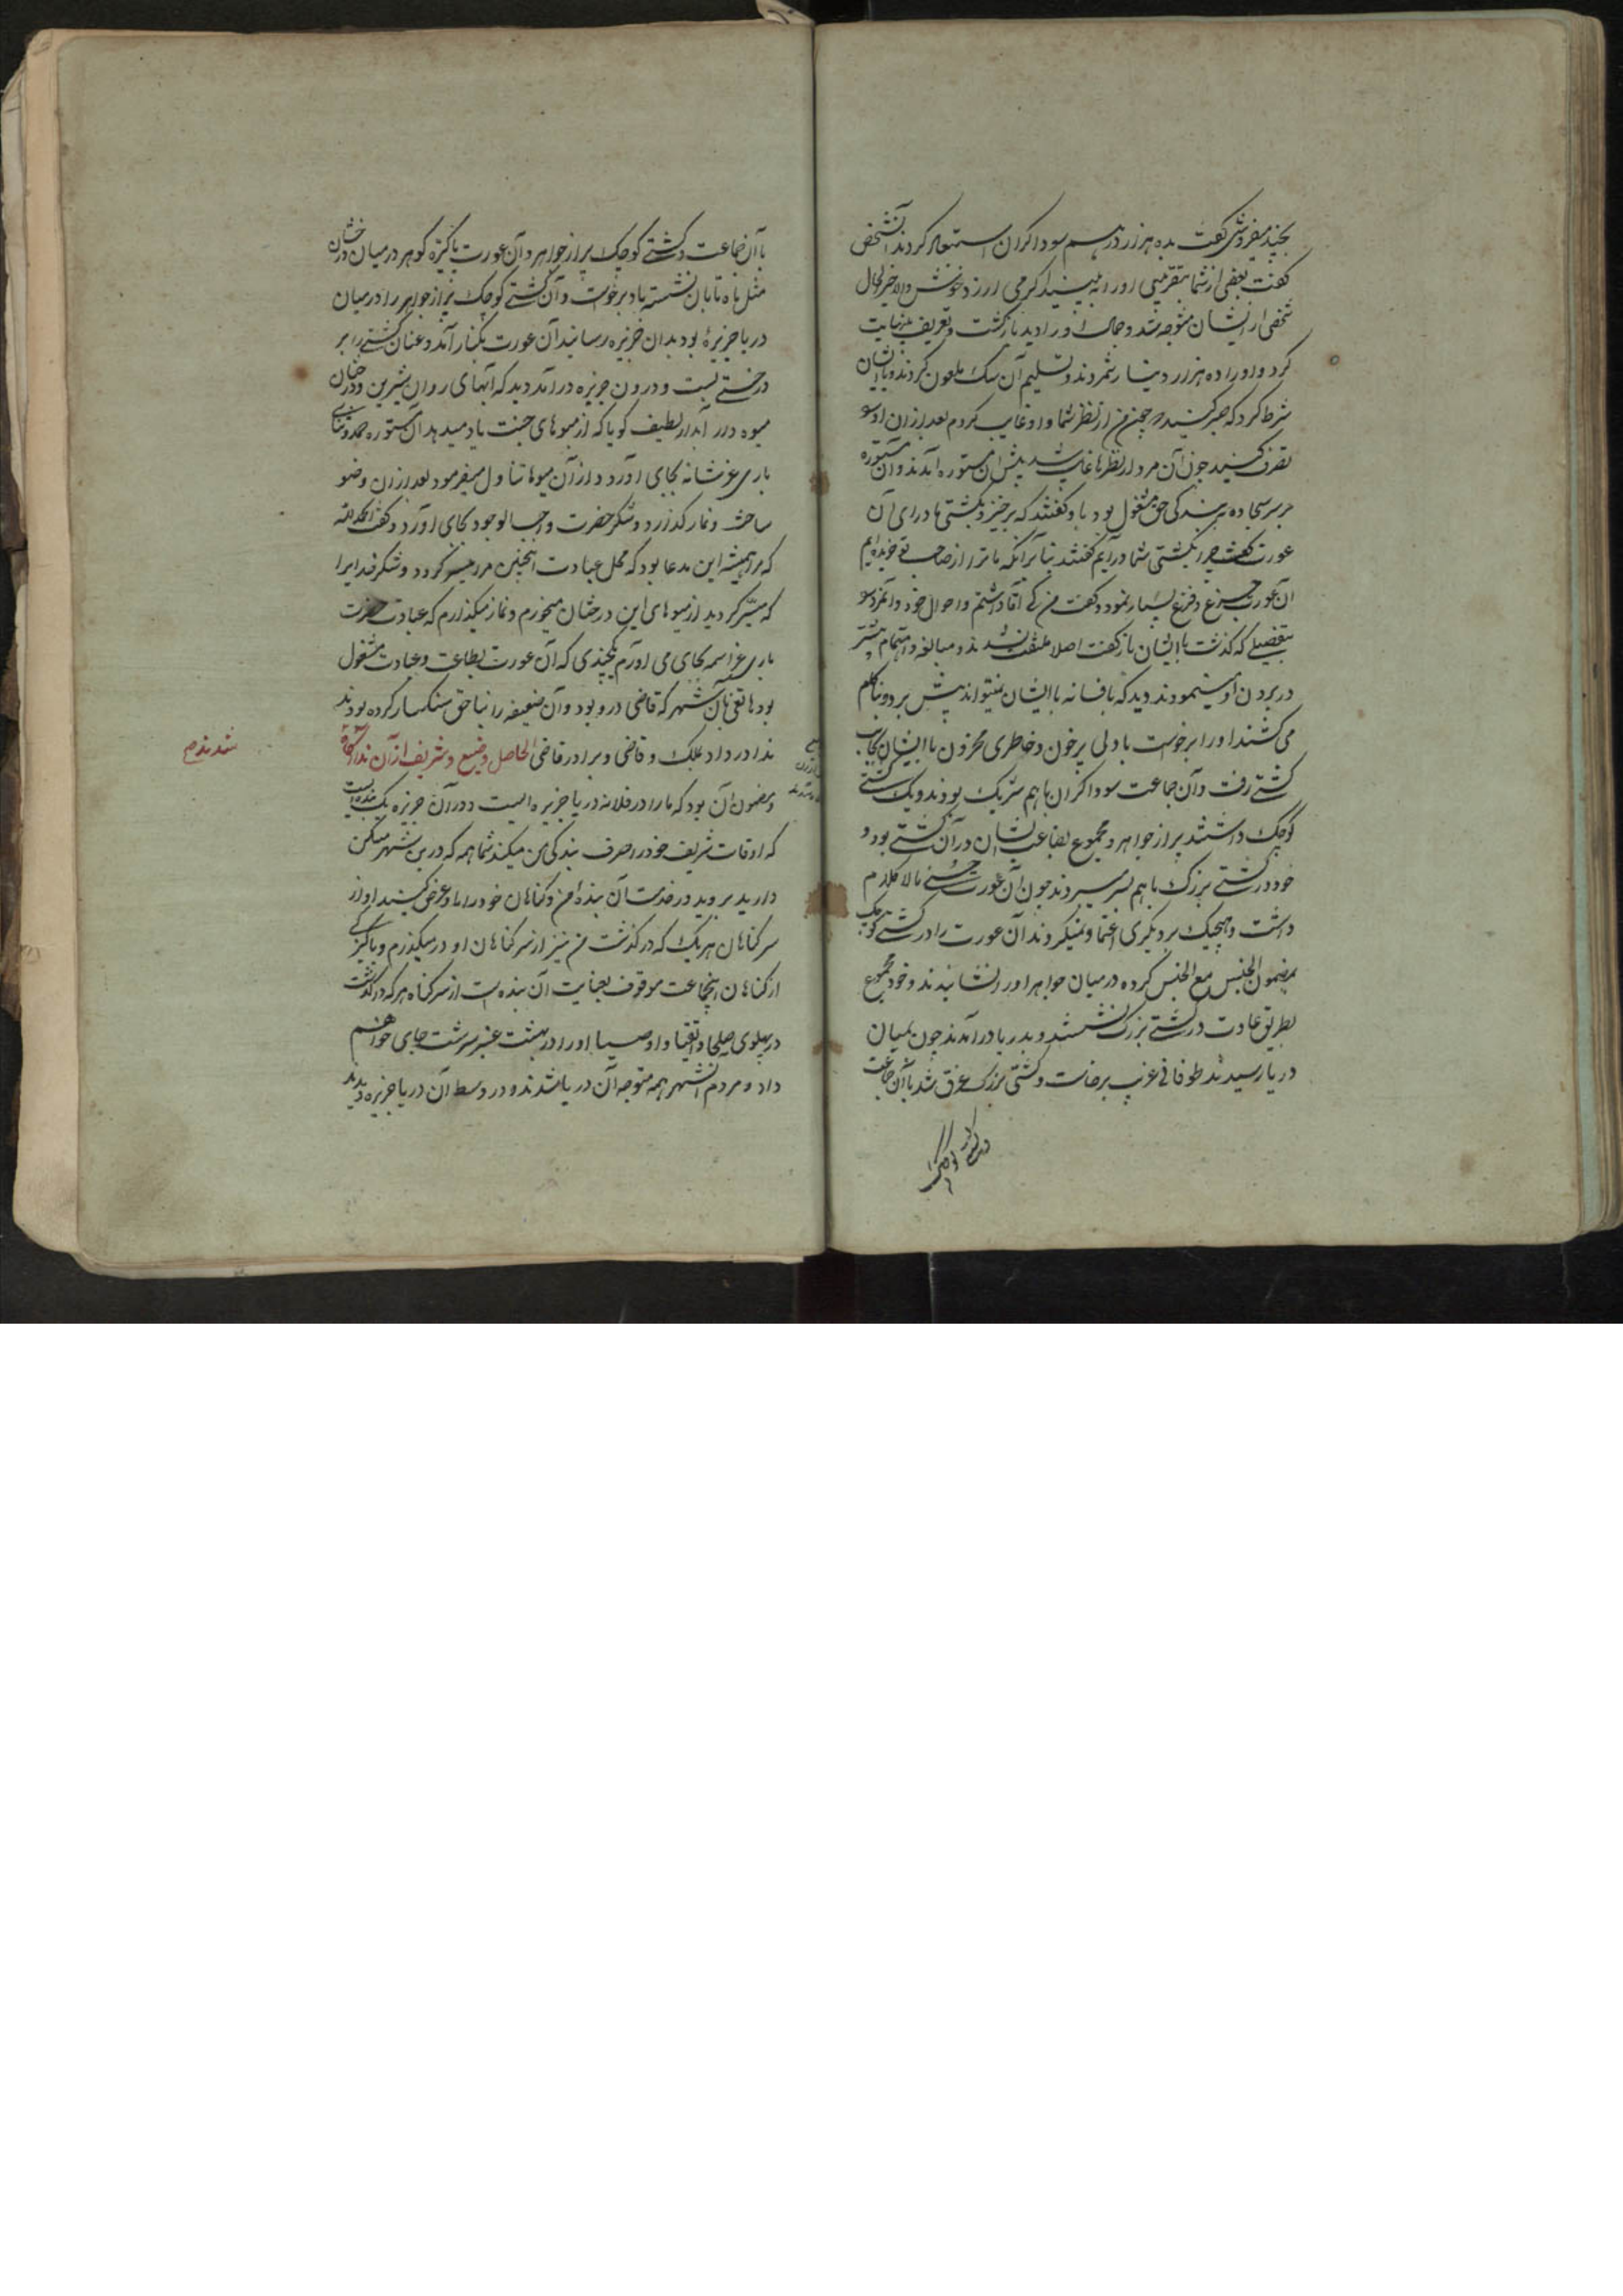 بچند میفروشی گفت بده هزار درهم سوداکران استبعاد کردند آنشخص
کفت بعضی از شما بتقریبی او را به بینید اکر می ارزد خوش والا خیر فی الحال
شخصی از ایشان متوجه شد و جمال او را دید بازکشت و تعریف بینهایت
کرد و او را ده هزار دینار شمردند و تسلیم آن سک ملعون کردند و با ایشان
شرط کرد که صبر کنید چندین من از نظر شما و او غایب کردم بعد از ان او را
تصرف کنید چون آن مرد از نظرها غایب شد پیش ان مستوره آمدند و آن مستوره
بر سر سجاده ببندکی حق مشغول بود باو کفتند که برخیز و بکشتی ما درای آن
عورت کفت چرا بکشتی شما درآیم کفتند بنا برانکه ما ترا از صاحب تو خریده ایم
آن عورت جزع و فزع بسیار نمود و کفت من کی آقا داشتم و احوال خود و آنمرد
بتفصیلی که کذشت با ایشان باز کفت اصلا ملتفت نشدند و مبالغه و اهتمام بیشتر
در بردن او مینمودند دید که بافسانه با ایشان نمیتواند پیش برد و بناکام
می کشند او را برخواست با دلی پرخون و خاطری محزون با ایشان بجانب
کشتی رفت و آن جماعت سوداکران باهم شریک بودند و یک کشتی
کوچک داشتند پر از جواهر و مجموع بضاعت ایشان در آن کشتی بود و
خود در کشتی بزرک باهم بسر میبردند چون آن عورت حسنی مالاکلام
داشت و هیچیک بر دیکری اعتماد نمیکردند آن عورت را در کشتی کوچک
بمضمون الجنس مع الجنس کرده در میان جواهر او را نشانیدند و خود مجموع
بطریق عادت در کشتی بزرک نشستند و بدریا درآمدند چون بمیان
دریا رسیدند طوفانی غریب برخاست و کشتی بزرک غرق شد با آن جماعت
با آن جماعت و کشتی کوچک پر از جواهر و آن عورت پاکیزه کوهر در میان درخشان
مثل ماه تابان نشسته باد برخواست و آن کشتی کوچک پر از جواهر را در میان
دریا جزیرهٔ بود بدان جزیره رسانید آن عورت بکنار آمد و عنان کشتی را بر
درختی بست و درون جزیره درآمد دید که آبهای روان شیرین و درختان
میوه دار آبدار لطیف کویا که از میوهای جنت یاد میدهد آن مستوره حمد و ثنای
باری عز شانه بجای آورد و از آن میوها تناول میفرمود بعد از ان وضو
ساخت و نماز کذارد و شکر حضرت واجب الوجود بجای آورد و کفت الحمد لله
که مرا همیشه این مدعا بود که محل عبادت اینچنین مرا میسر کردد و شکر خدایرا
که میسر کردید از میوهای این درختان میخورم و نماز میکذارم که عبادت حضرت
باری عز اسمه بجای می آورم بچندی که آن عورت بطاعت و عبادت مشغول
بود هاتفی بآن شهر که قاضی در و بود و آن ضعیفه را بناحق سنکسار کرده بودند
ندا درداد ملک و قاضی و برادر قاضی الحاصل وضیع و شریف از آن ندا آکاه
شدند
و مضمون آن بود که ما را در فلانه دریا جزیره ایست و در آن جزیره یک بنده ایست
که اوقات شریف خود را صرف بندکی من میکند شما همه که درین شهر مسکن
دارید بروید در خدمت آن بنده من و کناهان خود را باو عرض کنید او از
سر کناهان هر یک که درکذشت من نیز از سر کناهان او درمیکذرم و پاکیزکی
از کناهان اینجماعت موقوف بعنایت آن بنده است از سر کناه هر که درکذشت
در پهلوی صلحا و اتقیا و اوصیا او را در بهشت عنبر سرشت جای خواهم
داد و مردم آنشهر همه متوجه آن دریا شدند و در وسط آن دریا جزیره دیدند